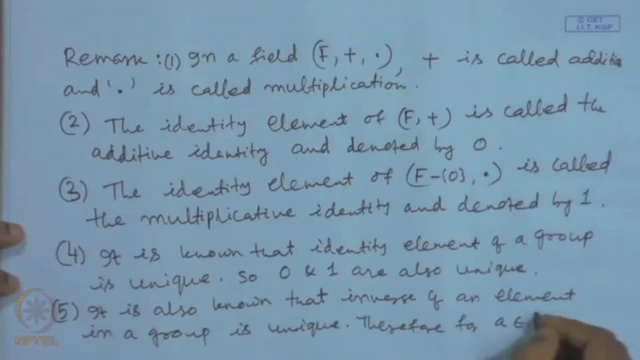 © CET
I.I.T. KGP
Remark : (1) In a field (F, +, ·), + is called additio
and '·' is called multiplication.
(2) The identity element of (F, +) is called the
additive identity and denoted by 0.
(3) The identity element of (F-{0}, ·) is called
the multiplicative identity and denoted by 1.
(4) It is known that identity element of a group
is unique. So 0 & 1 are also unique.
(5) It is also known that inverse of an element
in a group is unique. Therefore for a ∈
NPTEL